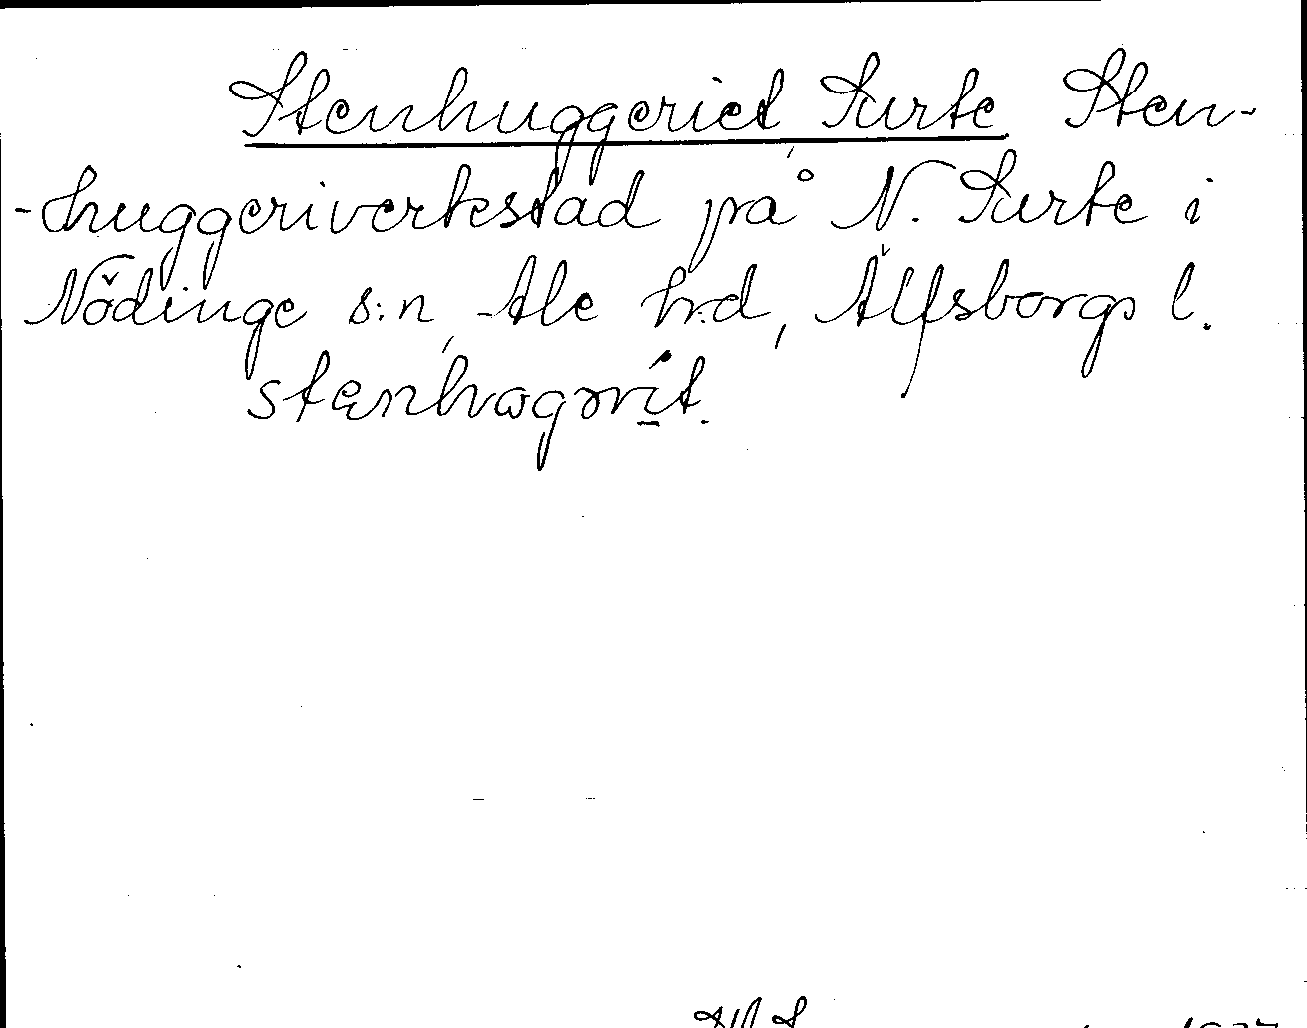 Stenhuggeriet Surte Sten-
-huggeriverkstad på N. Surte i
Nödinge s:n, Ale h:d, Älfsborgs l.